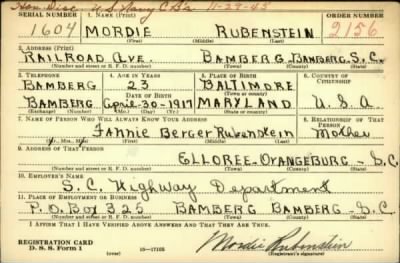 Hon. Disc. U.S. Navy C.B's 11-29-45
SERIAL NUMBER 1. Name (Print) ORDER NUMBER
1604 MORDIE RUBENSTEIN 2156
(First) (Middle) (Last)
2. Address (Print)
RAILROAD AVE. BAMBERG, BAMBERG S.C.
(Number and street or R. F. D. number) (Town) (County) (State)
3. Telephone 4. Age in Years 5. Place of Birth 6. Country of Citizenship
BAMBERG 23 BALTIMORE
(Town or county)
Date of Birth
BAMBERG April-30-1917 MARYLAND U.S.A.
(Exchange) (Number) (Mo.) (Day) (Yr.) (State or country)
7. Name of Person Who Will Always Know Your Address 8. Relationship of That Person
Fannie Berger Rubenstein Mother
(Mr., Mrs., Miss) (First) (Middle) (Last)
9. Address of That Person
ELLOREE-ORANGEBURG-S.C.
(Number and street or R. F. D. number) (Town) (County) (State)
10. Employer's Name
S.C. Highway Department
11. Place of Employment or Business
P.O. Box 325 BAMBERG BAMBERG-S.C.
(Number and street or R. F. D. number) (Town) (County) (State)
I Affirm That I Have Verified Above Answers and That They Are True.
REGISTRATION CARD
D. S. S. Form 1 16-17105 Mordie Rubenstein
(Registrant's signature)